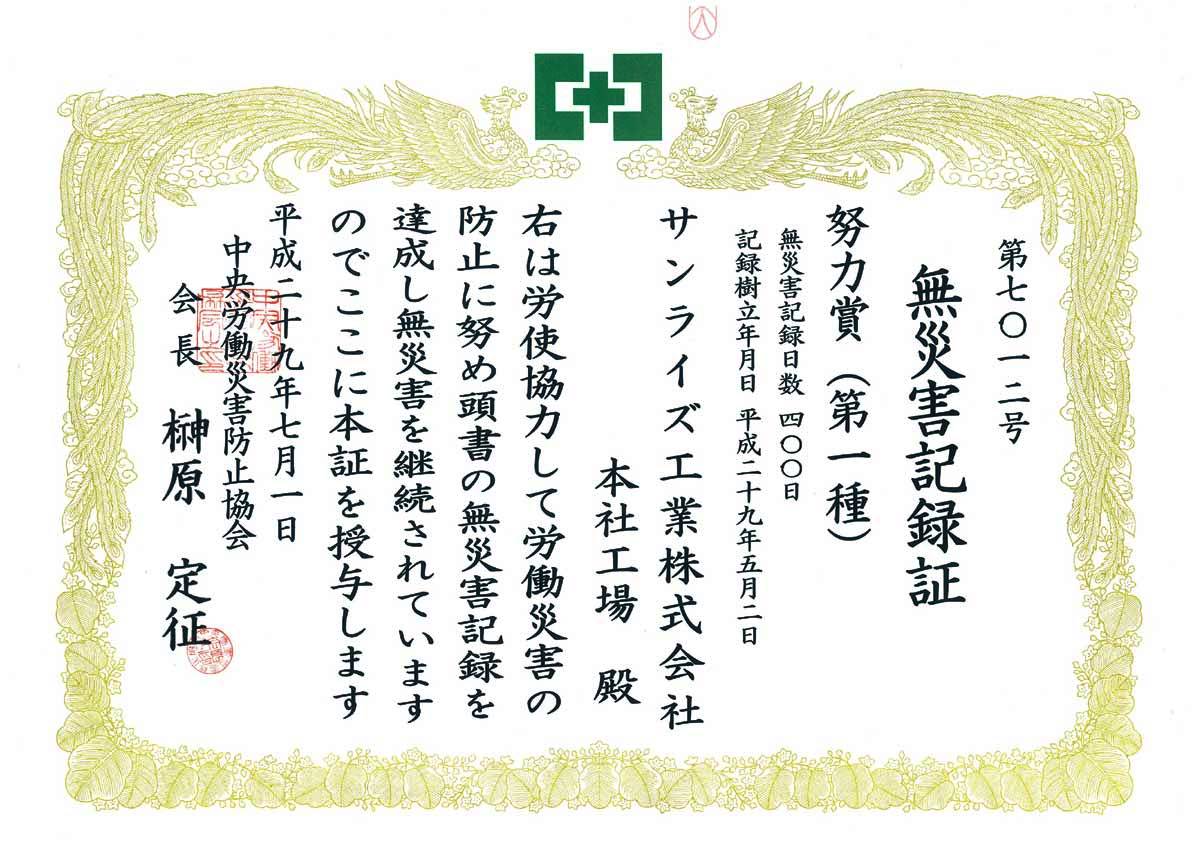 第七〇一二号
無災害記録証
努力賞（第一種）
無災害記録日数 四〇〇日
記録樹立年月日 平成二十九年五月二日
サンライズ工業株式会社
本社工場 殿
右は労使協力して労働災害の
防止に努め頭書の無災害記録を
達成し無災害を継続されています
のでここに本証を授与します
平成二十九年七月一日
中央労働災害防止協会
会長 榊原 定征